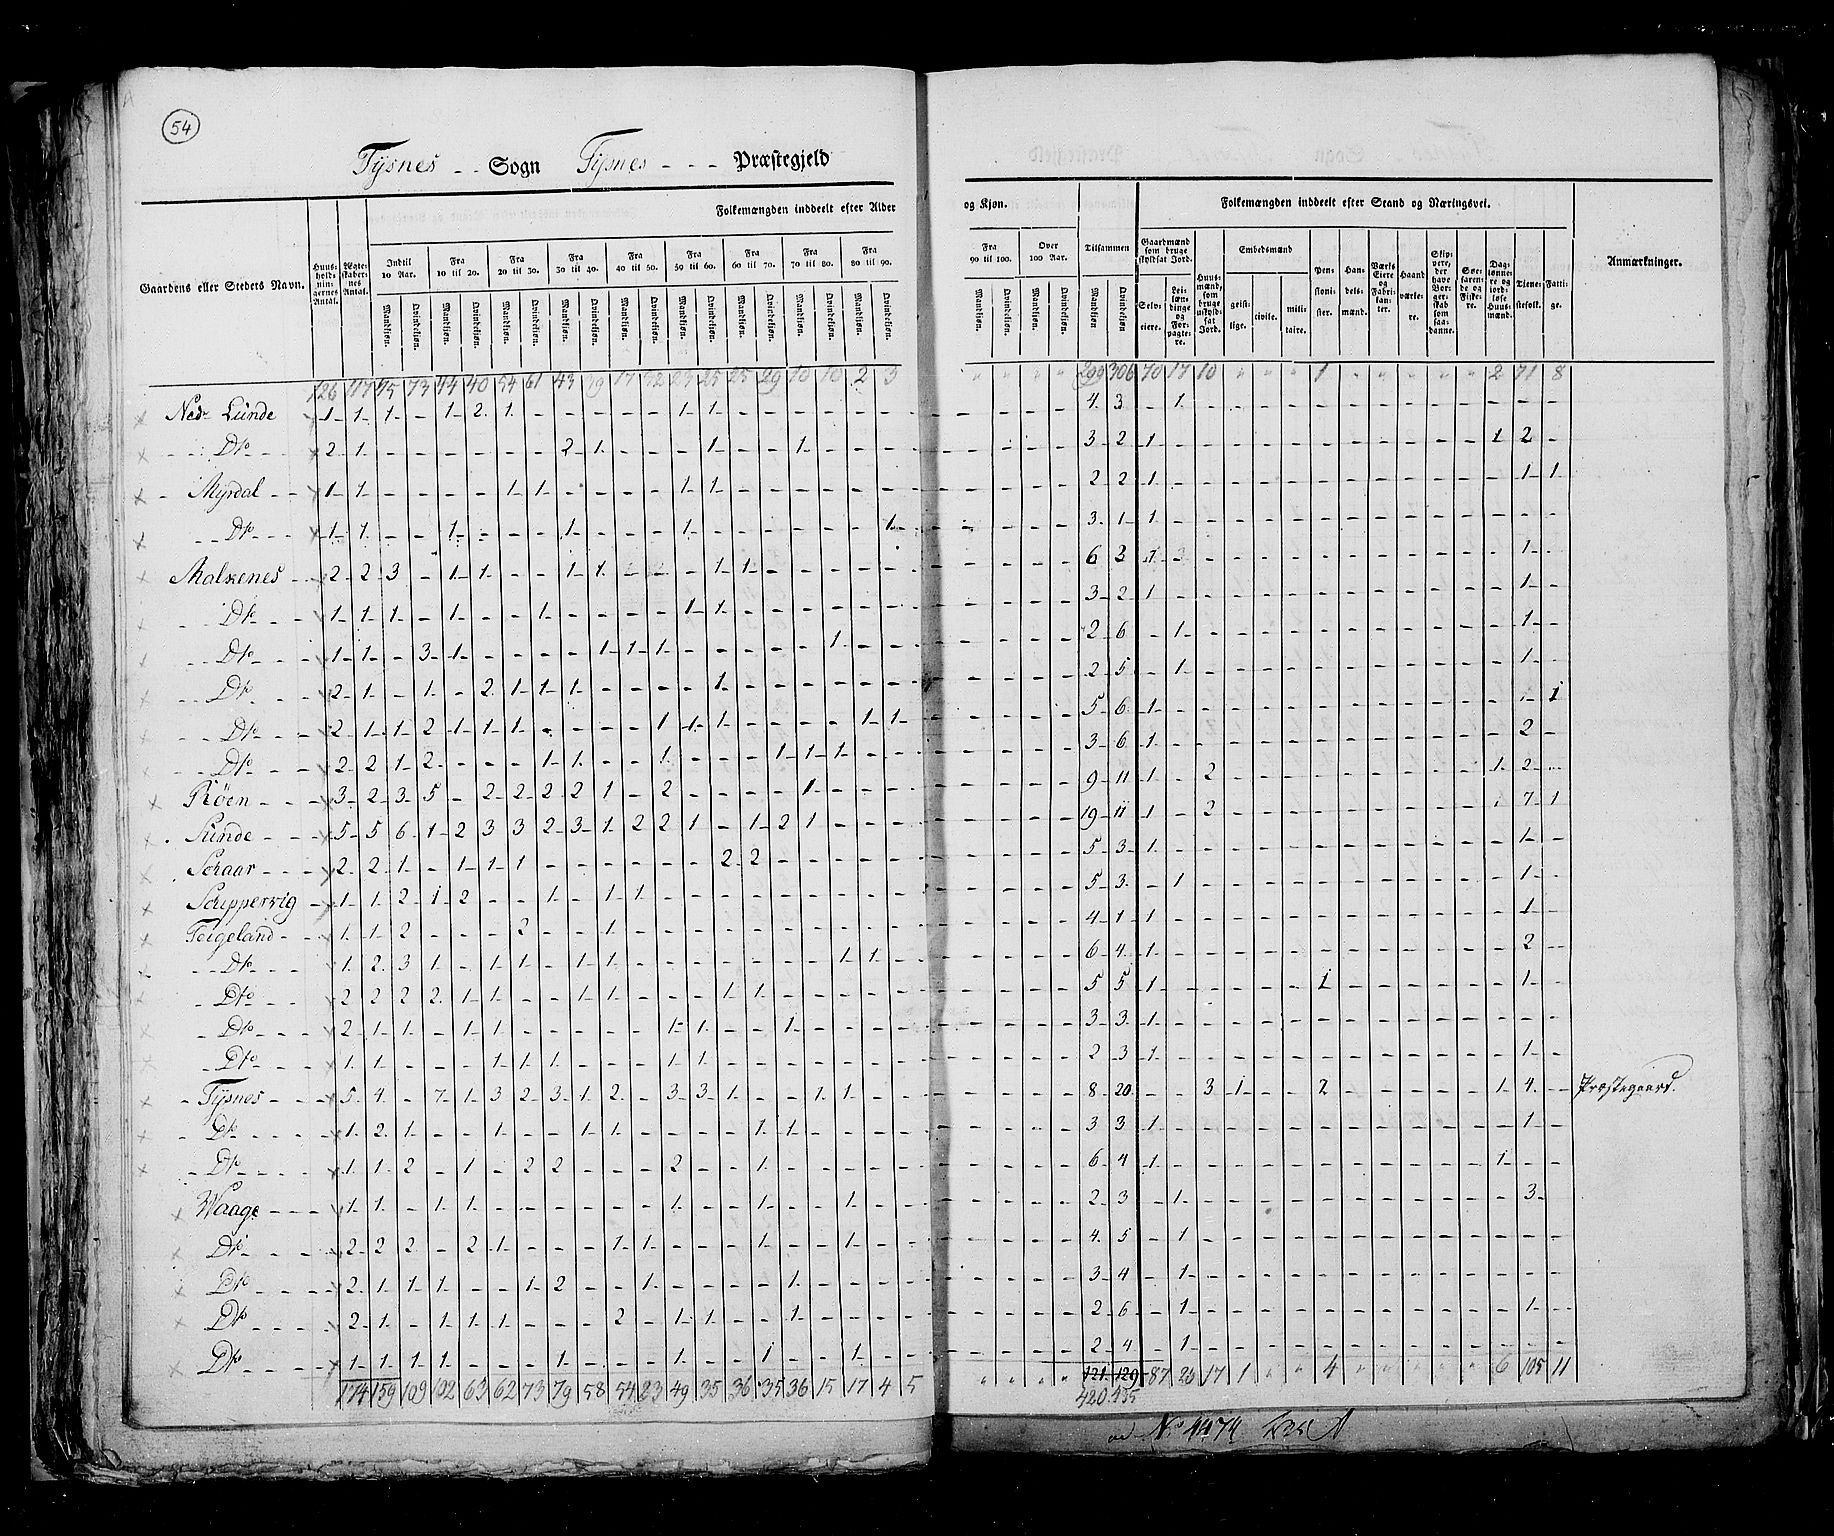 54
Tysnes - - Sogn Tysnes - - - Præstegjeld
Gaardens eller Stedets Navn.
Huusholdningernes Antal.
Ægteskabernes Antal.
Folkemængden inddeelt efter Alder
og Kjøn.
Folkemængden inddeelt efter Stand og Næringsvei.
Anmærkninger.
Indtil 10 Aar. Fra 10 til 20. Fra 20 til 30. Fra 30 til 40. Fra 40 til 50. Fra 50 til 60. Fra 60 til 70. Fra 70 til 80. Fra 80 til 90.
Fra 90 til 100. Over 100 Aar. Tilsammen
Mandkjøn. Qvindekjøn.
Gaardmænd som bruge skyldsat Jord.
Selveiere. Leilændinge og Forpagtere.
Huusmænd, som bruge uskyldsat Jord.
Embedsmænd
geistlige. civile. militaire.
Pensionister. Handelsmænd. Værks Eiere og Fabrikanter. Haandværkere. Skippere, der have Borgerskab som saadanne. Søefarende og Fiskere. Daglønnere og jordløse Huusmænd. Tjenestefolk. Fattige.
126 117 95 73 44 40 54 61 43 39 17 32 23 25 25 29 10 10 2 3 " " " " 299 306 70 17 10 " " " 1 " " " " " 2 71 8
Ned Lunde - 1 - 1 - 1 - - 1 - 2 1 - - - - - 1 - 1 - - - - - - 4 3 - 1 - - - - - - - - - - - - -
Do 2 1 - - - - - - 2 1 - - - 1 - - 1 - - - 3 2 1 - - - - - - - - - - - 1 2 -
Myrdal 1 1 - - - - 1 1 - - - - 1 1 - - - - - - 2 2 1 - - - - - - - - - - - - 1 1
Do 1 1 - - 1 - - - 1 - - - 1 - - - - - - 1 3 1 1 - - - - - - - - - - - - - -
Malkenes 2 2 3 - 1 1 - - 1 1 - - - 1 1 - - - - - 6 3 1 - - - - - - - - - - - - 1 -
Do 1 1 1 - 1 - - 1 - - - - 1 1 - - - - - - 3 2 1 - - - - - - - - - - - - 1 -
Do 1 1 - 3 1 - - - - 1 1 1 - - - - - 1 - - 2 6 - 1 - - - - - - - - - - - 1 -
Do 2 1 - 1 - 2 1 1 1 - - - - 1 - - - - - - 2 5 - 1 - - - - - - - - - - - 1 -
Do 2 1 1 2 1 1 1 - - - - 1 1 1 - - - - 1 1 5 6 1 - - - - - - - - - - - - 1 1
Do 2 2 1 2 - - - 1 1 - - 1 - - - 1 1 1 - - 3 6 1 - - - - - - - - - - - - 2 -
Röen 3 2 3 5 - 2 2 2 2 1 - 2 - - - - 1 - - - 9 11 1 - 2 - - - - - - - - - 1 2 -
Sunde 5 5 6 1 2 3 3 2 3 1 2 2 1 - 1 2 1 - - - 19 11 1 - 2 - - - - - - - - - 1 7 1
Scaar 2 2 1 - 1 1 1 - - - - - - 2 2 - - - - - 5 3 1 - - - - - - - - - - - - 1 -
Scippervig 1 1 2 1 2 - - 1 - 1 1 - - - - - - - - - 5 3 - 1 - - - - - - - - - - - 1 -
Teigeland 1 1 2 - - - 2 - - 1 - - - - - - - - - - 4 1 1 - - - - - - - - - - - - 1 -
Do 1 2 3 1 - 1 1 - 1 1 - - - - - - - 1 1 - 6 4 1 - - - - - - - - - - - - 2 -
Do 2 2 2 2 1 1 - - 1 1 - - - 1 1 - - - - - 5 5 1 - - - - - 1 - - - - - - 1 -
Do 2 1 1 - 1 1 - - - - - 1 1 - - 1 - - - - 3 3 1 - - - - - - - - - - - - - -
Do 1 1 - - - 1 1 1 - - - 1 1 - - - - - - - 2 3 1 - - - - - - - - - - - - 1 -
Tysnes 5 4 - 7 1 3 2 3 1 2 - 3 3 1 - - 1 1 - - 8 20 - - 3 1 - - 2 - - - - - 1 4 - Præstegaard.
Do 1 2 1 - - 1 - - 1 1 - - - - 1 1 - - - - 3 3 1 - - - - - - - - - - - - 1 -
Do 1 1 2 - 1 - 2 2 - - - 2 - - 1 - - - - - 6 4 1 - - - - - - - - - - - 1 - -
Waage 1 1 - 1 1 - - - - - - 1 - - 1 - - 1 - - 2 3 - 1 - - - - - - - - - - - 3 -
Do 2 2 2 - 2 1 - - - 1 1 - - - 1 - - 1 - - 4 5 - 1 - - - - - - - - - - - - -
Do 2 1 1 1 - - 1 2 - - 1 - - - - 1 - - - - 3 4 - 1 - - - - - - - - - - - - -
Do 2 1 - 1 1 1 - - - 2 - 1 1 - - 1 - - - - 2 6 - 1 - - - - - - - - - - - 1 -
Do 1 1 1 1 - - - 1 - - - 1 - - 1 - - 1 - - 2 4 - 1 - - - - - - - - - - - - -
174 159 109 102 63 62 73 79 58 54 23 49 35 36 35 36 15 17 4 5 " " " " 121 129 87 25 17 1 " " 4 " " " " " 6 105 11
420 435